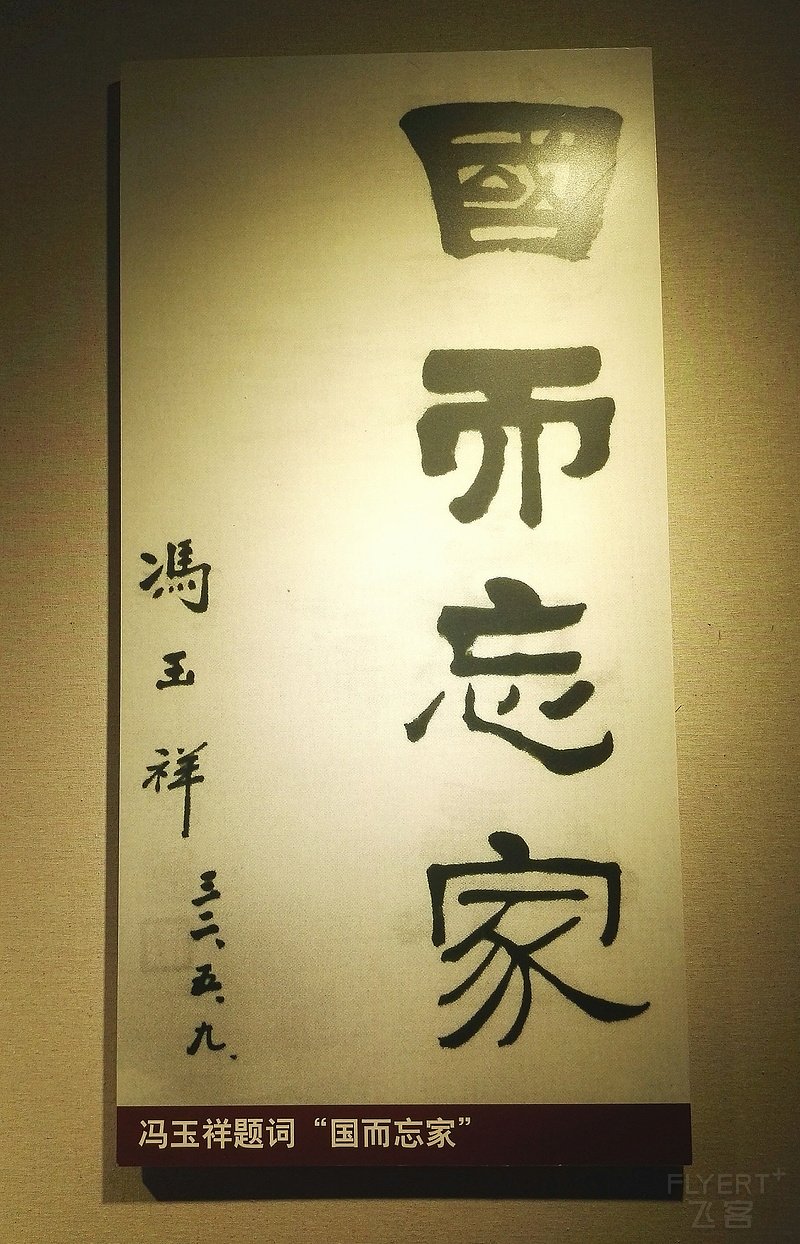 國而忘家
馮玉祥
三二、五、九、
冯玉祥题词“国而忘家”
FLYERT+
飞客